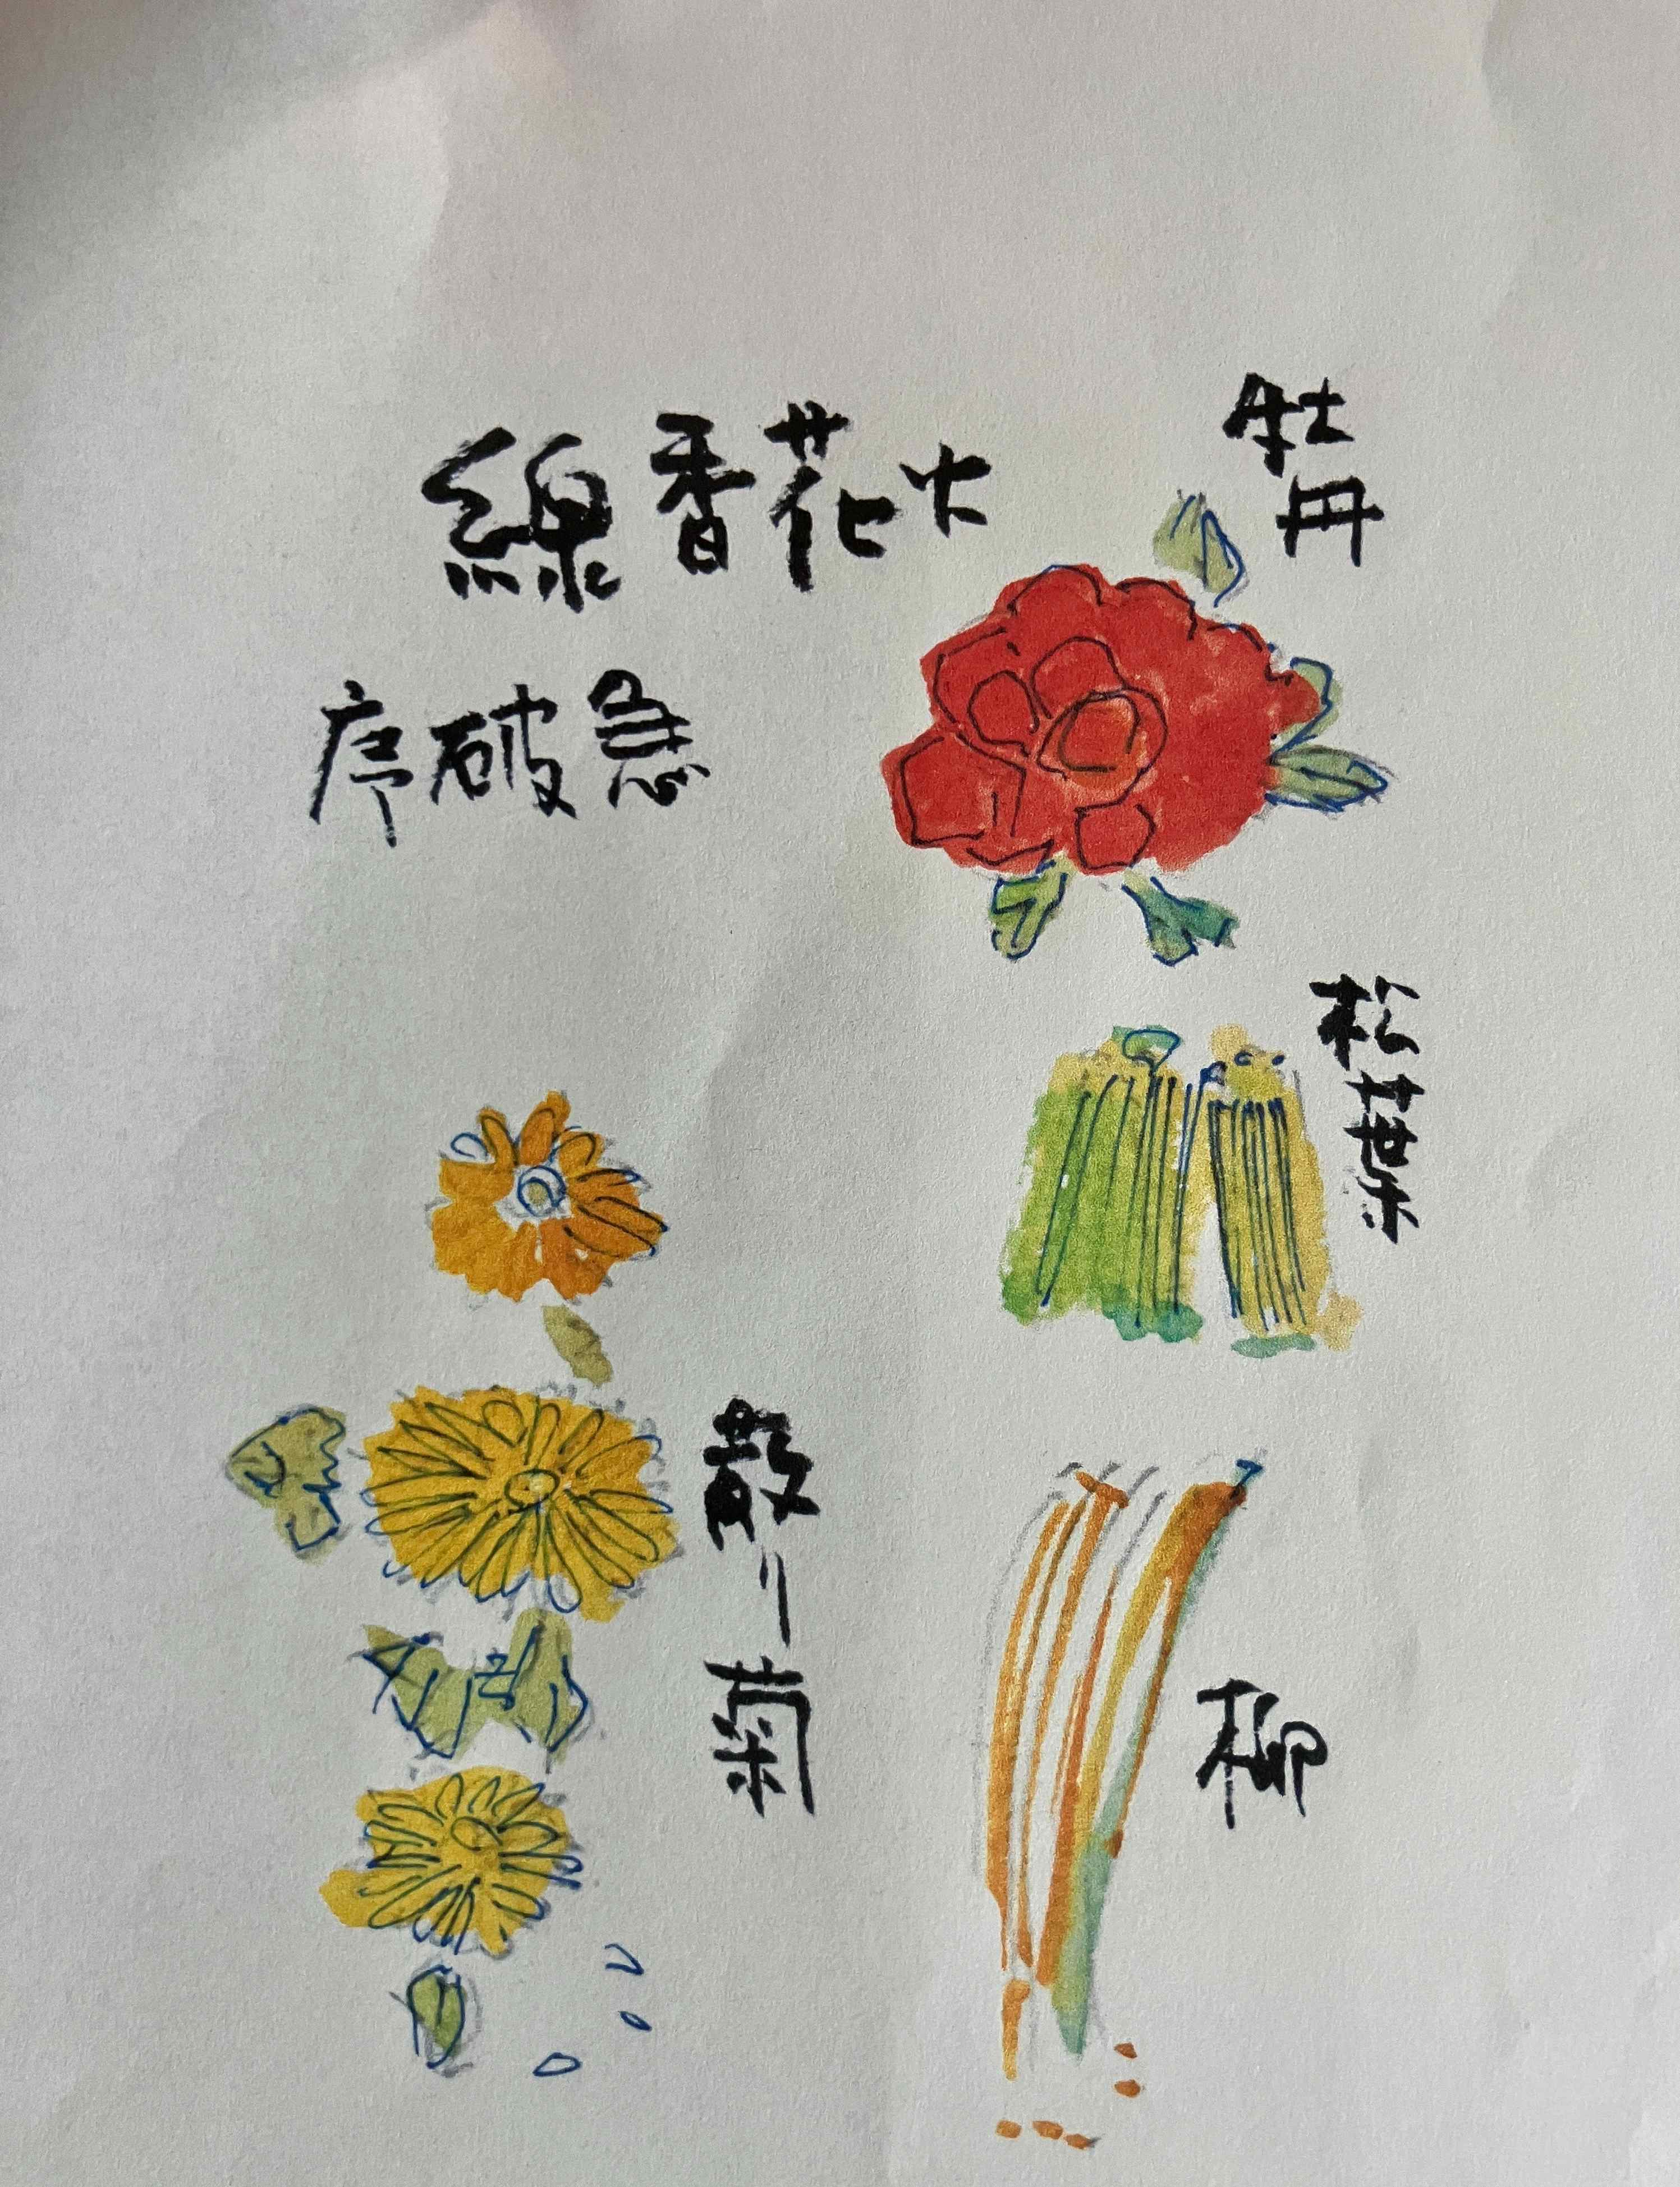 線香花火
序破急
牡丹
松葉
柳
散り菊